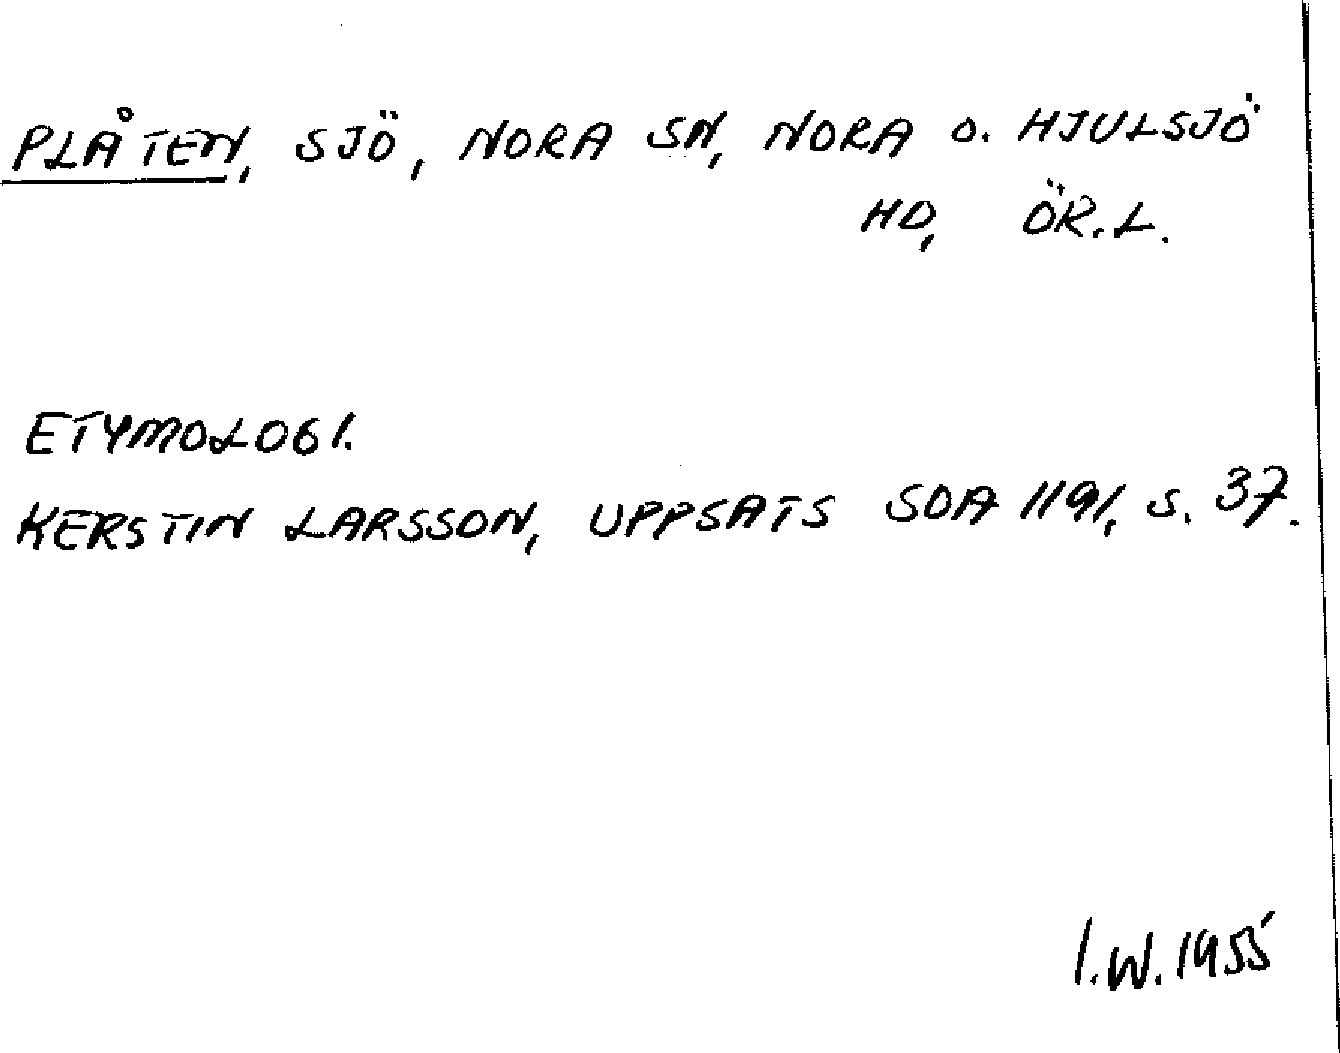 PLÅTEN, SJÖ, NORA SN, NORA O. HJULSJÖ
HD, ÖR.L.
ETYMOLOGI.
KERSTIN LARSSON, UPPSATS SOA 1191, S. 37.
I.W. 1955